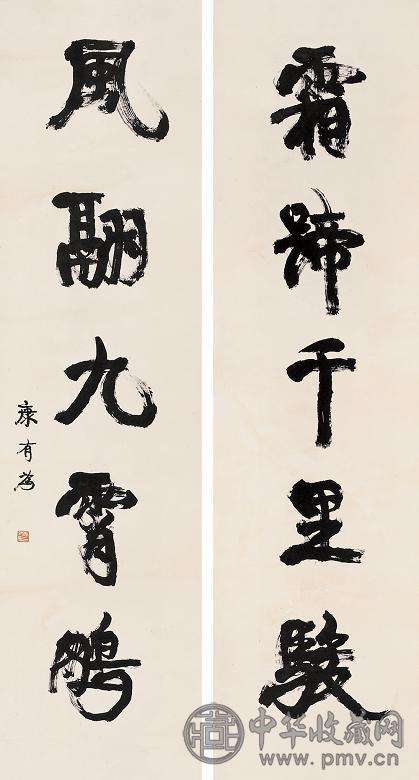 霜蹄千里駿
風翮九霄鵬
康有為
中华收藏网
www.pmv.cn